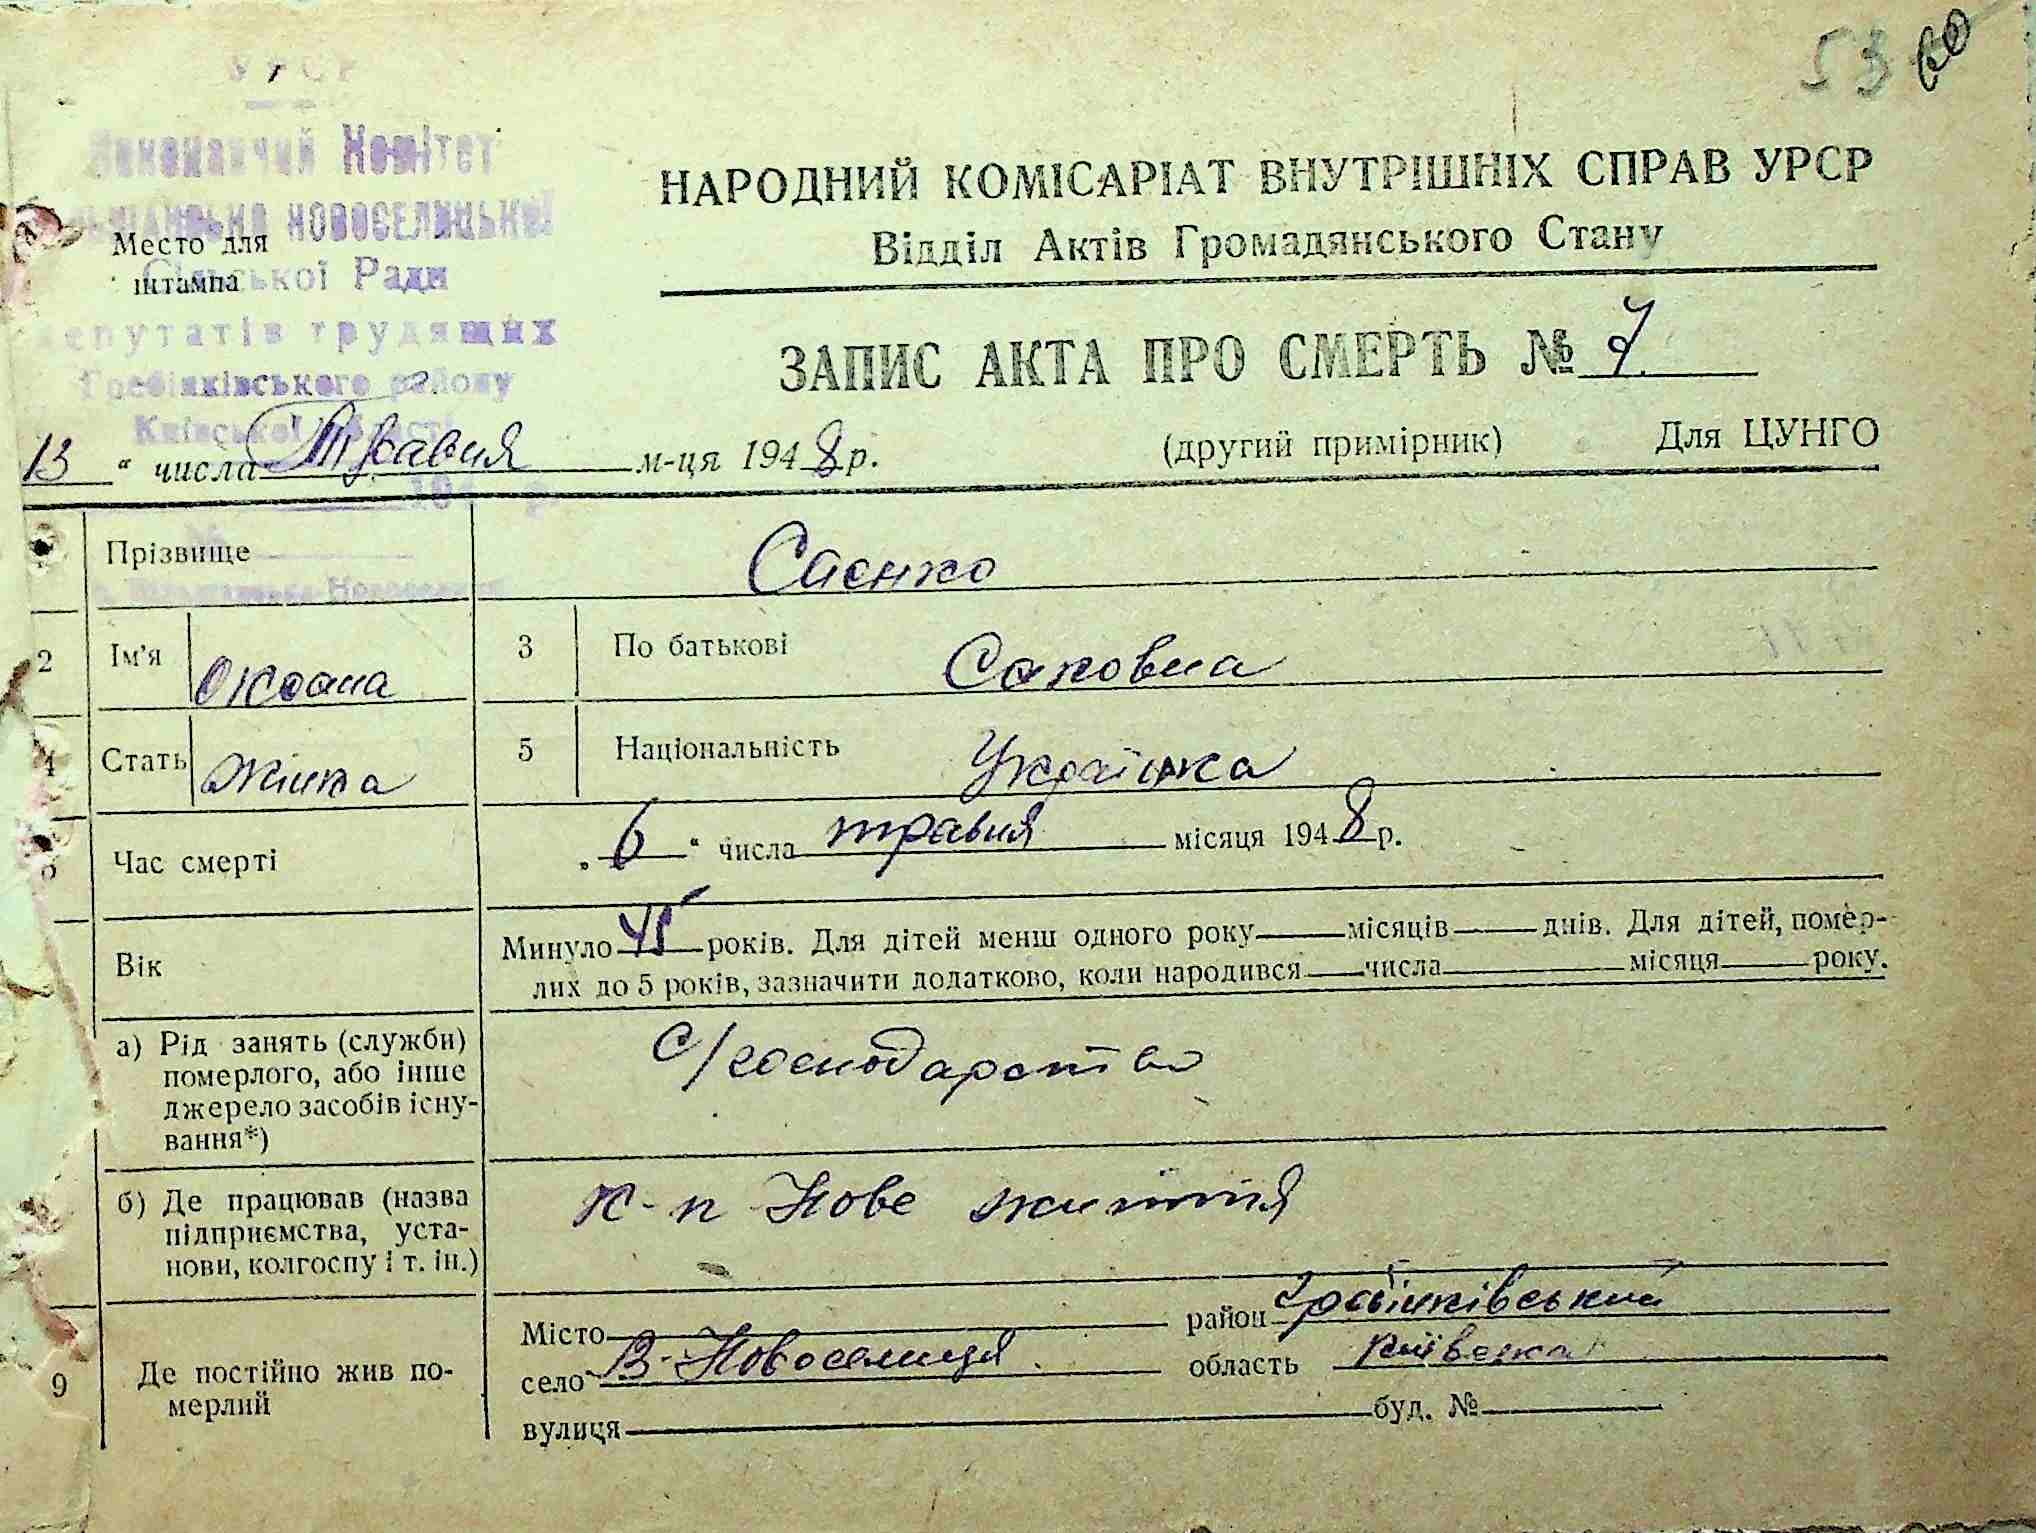 53 60
УРСР
Виконавчий Комітет
Новоселицької
Место для
штампа
Сільської Ради
депутатів трудящих
Гребінківського району
Київської області
НАРОДНИЙ КОМІСАРІАТ ВНУТРІШНІХ СПРАВ УРСР
Відділ Актів Громадянського Стану
ЗАПИС АКТА ПРО СМЕРТЬ № 7
13 " числа Травня м-ця 1948 р. (другий примірник) Для ЦУНГО
194 р.
Прізвище Саєнко
2 Ім'я Оксана 3 По батькові Саковна
4 Стать жінка 5 Національність Українка
Час смерті „ 6 " числа травня місяця 1948 р.
Вік Минуло 45 років. Для дітей менш одного року місяців днів. Для дітей, помер-
лих до 5 років, зазначити додатково, коли народився числа місяця року.
а) Рід занять (служби)
померлого, або інше
джерело засобів існу-
вання*)
с/господарство
б) Де працював (назва
підприємства, уста-
нови, колгоспу і т. ін.)
к-п Нове життя
9 Де постійно жив по-
мерлий
Місто район Гребінківський
село В-Новоселиця область Київська
вулиця буд. №